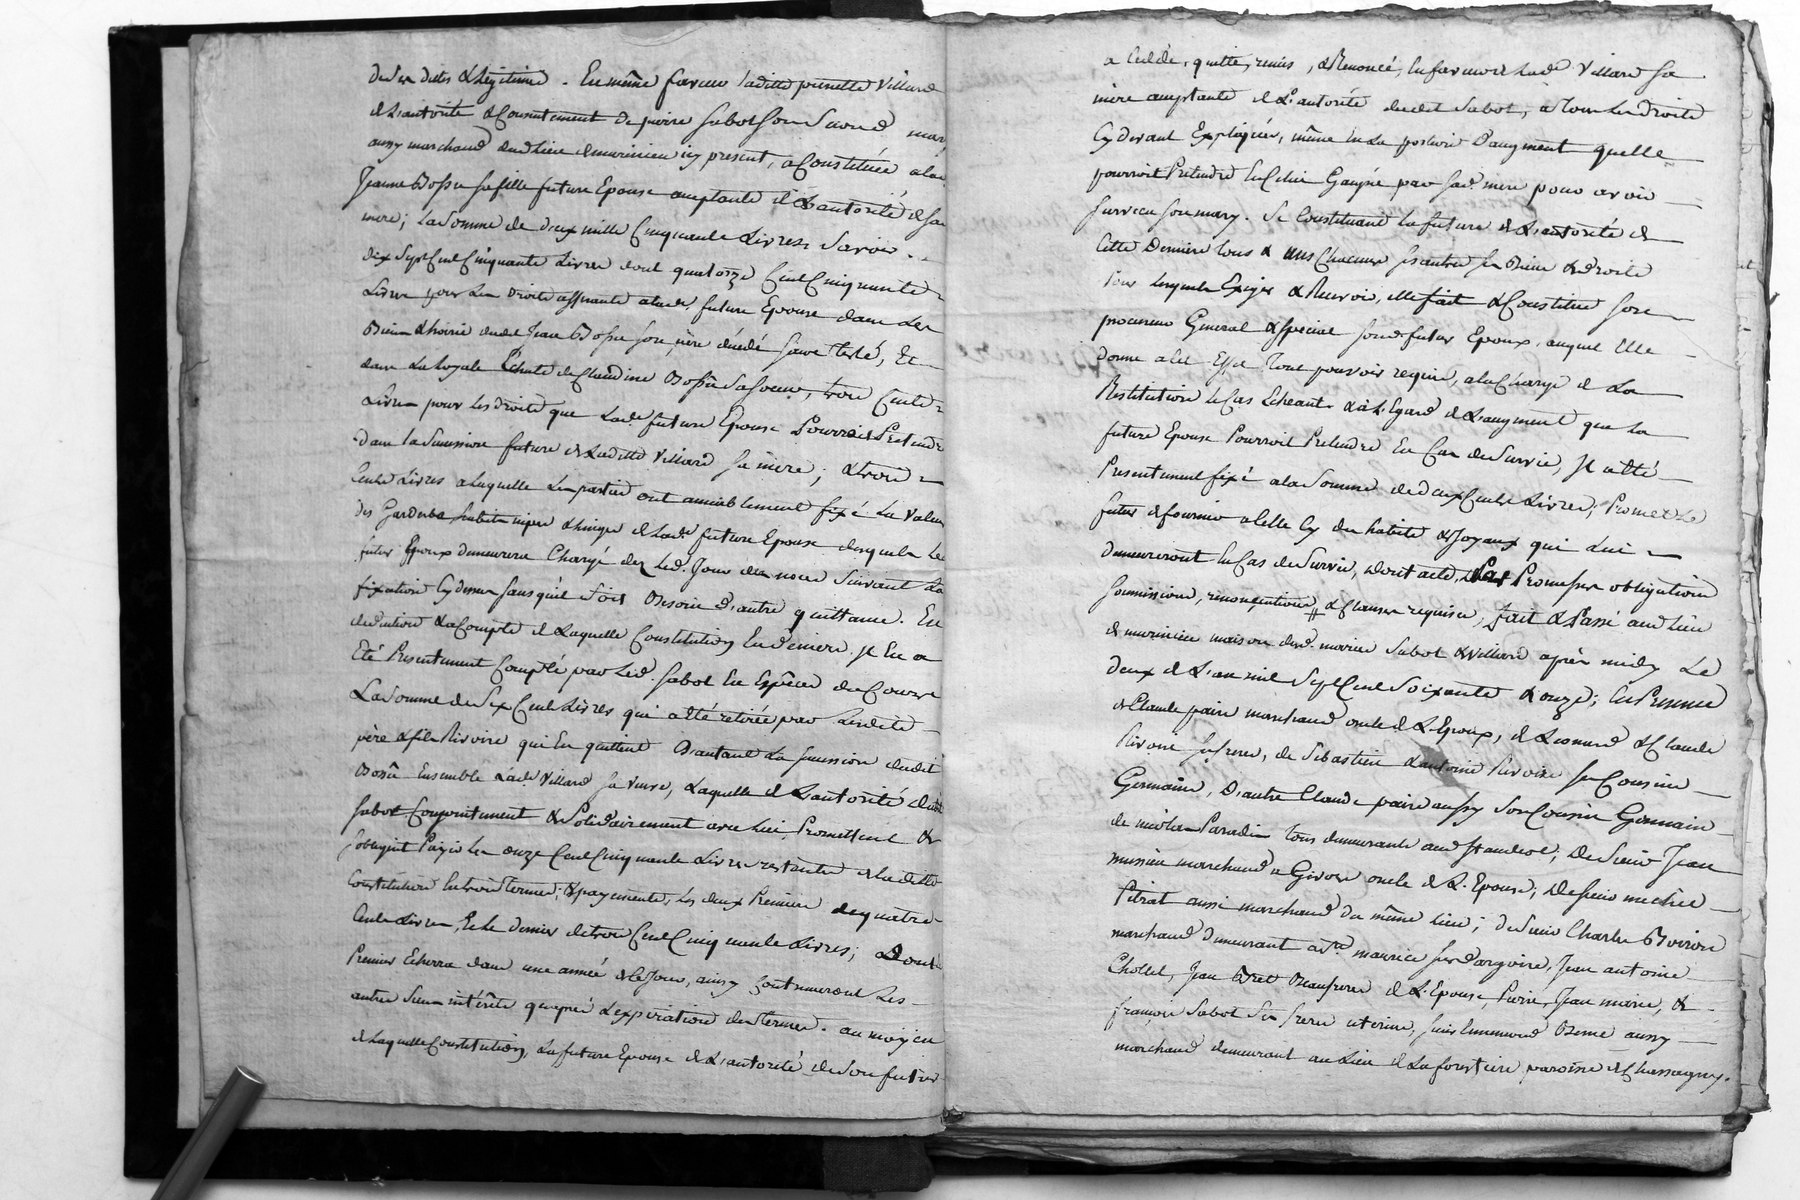 de ses dettes & legitime. En même faveur laditte pernette Villard
de L'autorité & Consentement de pierre Sabot Son Second mary
aussy marchand dud. Lieu de murinieu icy present, a Constituée a lad.
Jeanne Bossu sa fille future Epouse acceptante de L'autorité de Sa
mere; La Somme de deux mille Cinquante Livres Savoir
dix Sept Cent Cinquante Livres dont quatorze Cent Cinquante
Livres pour Les droits afferants a lad. future Epouse dans Les
Biens & hoirie dudit Jean Bossu son père décédé sans testé, &
dans La Loyale Echute de Claudine Bossu Sa Soeur, trois Cents
Livres pour les droits que Lad. future Epouse Pourroit Pretendre
dans la Succession future de Laditte Villard Sa mère; & trois
Cents Livres a Laquelle Les parties ont amiablement fixé La Valeur
des Garderobe habits nipes & linges de Lad. future Epouse desquels Le
futur Epoux demeurera Chargé dez Led. Jour des noces Suivant La
fixation Cy dessus sans qu'il Soit Besoin d'autre quittance. En
deduction & a Compte de Laquelle Constitution En deniers. Il En a
Eté Presentement Compté par Led. Sabot En Espèces de Cours
La Somme de Six Cent Livres qui a Eté retirée par Lesdits
père & fils Rivoire qui En quittent D'autant La Succession dudit
Bossu Ensemble Lad. Villard Sa Veuve, Laquelle de L'autorité dudit
Sabot Conjointement & Solidairement avec Lui Promettent &
S'obligent Payer Les onze Cent Cinquante Livres restants de laditte
Constitution En trois termes & payements, les deux Premiers de quatre
Cents Livres, Et Le dernier de trois Cent Cinquante Livres; Dont Le
Premier Echerra dans une année de ce Jour, ainsy Continueront Les
autres Sans intérêts qu'après L'expiration des termes. au moyen
de Laquelle Constitution, La future Epouse de L'autorité de Son futur
a Cédé, quitté, remis, & Renoncé, En faveur de Lad. Villard Sa
mère acceptante de L'autorité dudit Sabot, a tous Les Droits
Cy devant Expliqués, même En La portion D'augment quelle
pourroit Pretendre En Celui Gaigné par Sad. mere pour avoir
Survecu Son mary. Se Constituant La future de L'autorité de
Cette Derniere tous & uns Chacuns ses autres Biens & droits
Pour Lesquels Exiger & Recevoir, elle fait & Constitue Son
procureur General & special Sond. futur Epoux, auquel Elle
donne a Cet Effet Tout pouvoir requis, a la Charge de La
Restitution le Cas Echeant. & à L'Egard de L'augment que La
future Epouse Pourroit Pretendre En Cas de Survie, Il a Eté
Presentement fixé a la Somme de deux Cents Livres, Promet Le
futur de fournir a Celle Cy des habits & Joyaux qui Lui
demeureront En Cas de Survie, dont acte, Par Promesses obligations
Soumissions, renonciations # & Clauses requises, fait & Passé aud. Lieu
de murinieu maison desd. mariés Sabot & Villard après midy Le
deux de L'an mil Sept Cent Soixante & onze; En Presence
de Claude paire marchand oncle de L'Epoux, de Leonard & Claude
Rivoire Ses freres, de Sebastien & antoine Rivoire Ses Cousins
Germains, D'autre Claude paire aussy Son Cousin Germain
de nicolas Paradis tous demeurants aud. Standeol, De Sieur Jean
mussieu marchand a Givors oncle de L'Epouse; De Sieur michel
Pitrat aussi marchand du même Lieu; de Sieur Charles Boiron
marchand demeurant a St. maurice sur Dargoire, Jean antoine
Chollet, Jean Bret Beaufreres de L'Epouse Pierre, Jean marie, &
françois Sabot Ses freres uterins, Sieur Ennemond Besme aussy
marchand demeurant au Lieu de La forestiere paroisse de Chassagny.